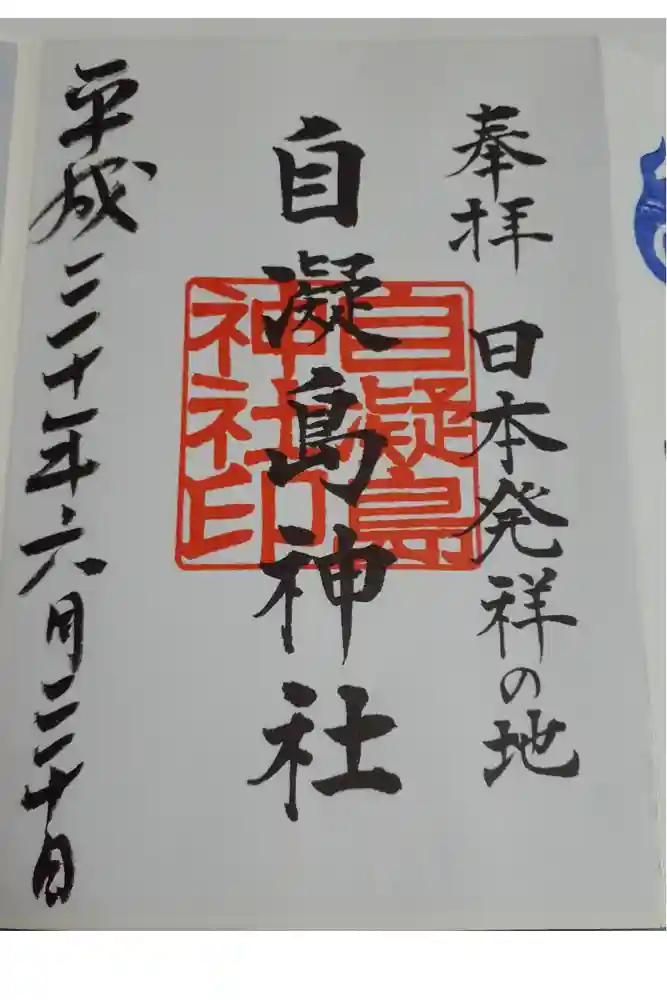 奉拝　日本発祥の地
自凝島神社
自凝島
神社印
平成三十年六月三十日